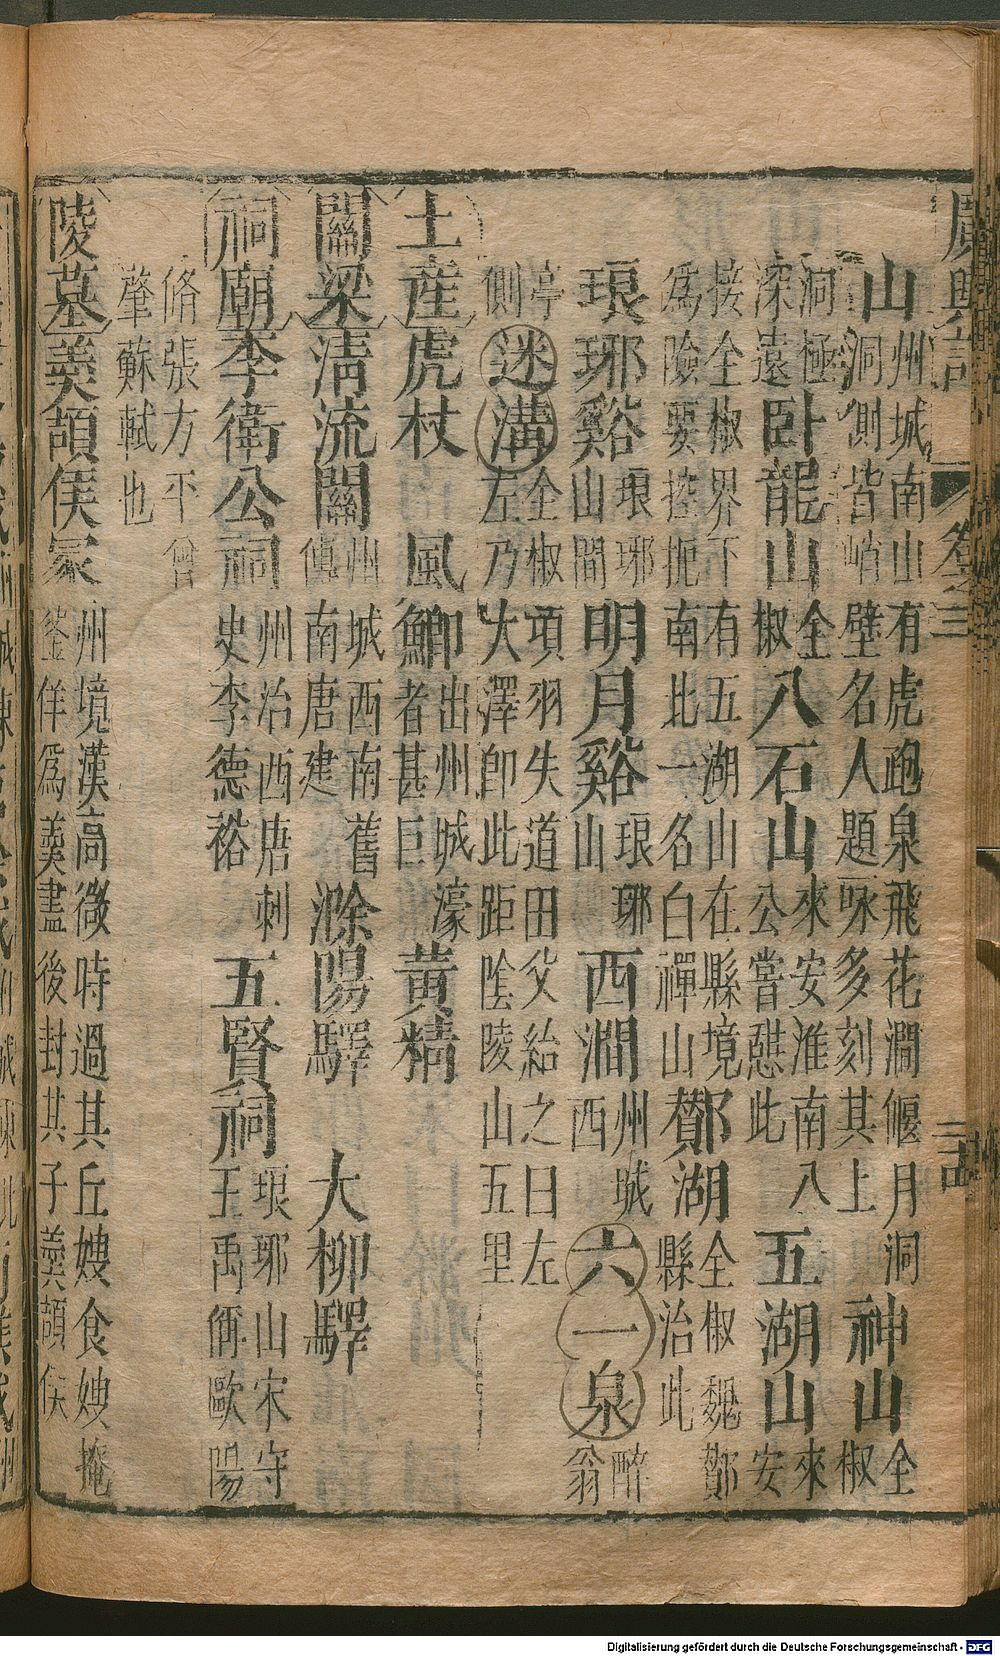 廣輿記 卷之三 二十四
山州城南山有虎跑泉飛花澗偃月洞洞側皆峭壁名人題咏多刻其上神山全椒
洞極深遠臥龍山全椒八石山來安淮南八公嘗憇此五湖山來安
接全椒界下有五湖山在縣境爲險要控扼南北一名白禪山鄼湖全椒魏鄼縣治此
琅琊谿琅琊山間明月谿琅琊山西澗州城西六一泉醉翁
亭側迷溝全椒項羽失道田父紿之曰左左乃大澤即此距陰陵山五里
土產虎杖 風鯽出州城濠者甚巨 黃精
關梁清流關州城西南舊傳南唐建滁陽驛 大柳驛
祠廟李衛公祠州治西唐刺史李德裕五賢祠琅琊山宋守王禹偁歐陽
脩張方平曾肇蘇軾也
陵墓羹頡侯冢州境漢高微時過其丘嫂食嫂掩釜佯爲羹盡後封其子羹頡侯
Digitalisierung gefördert durch die Deutsche Forschungsgemeinschaft - DFG